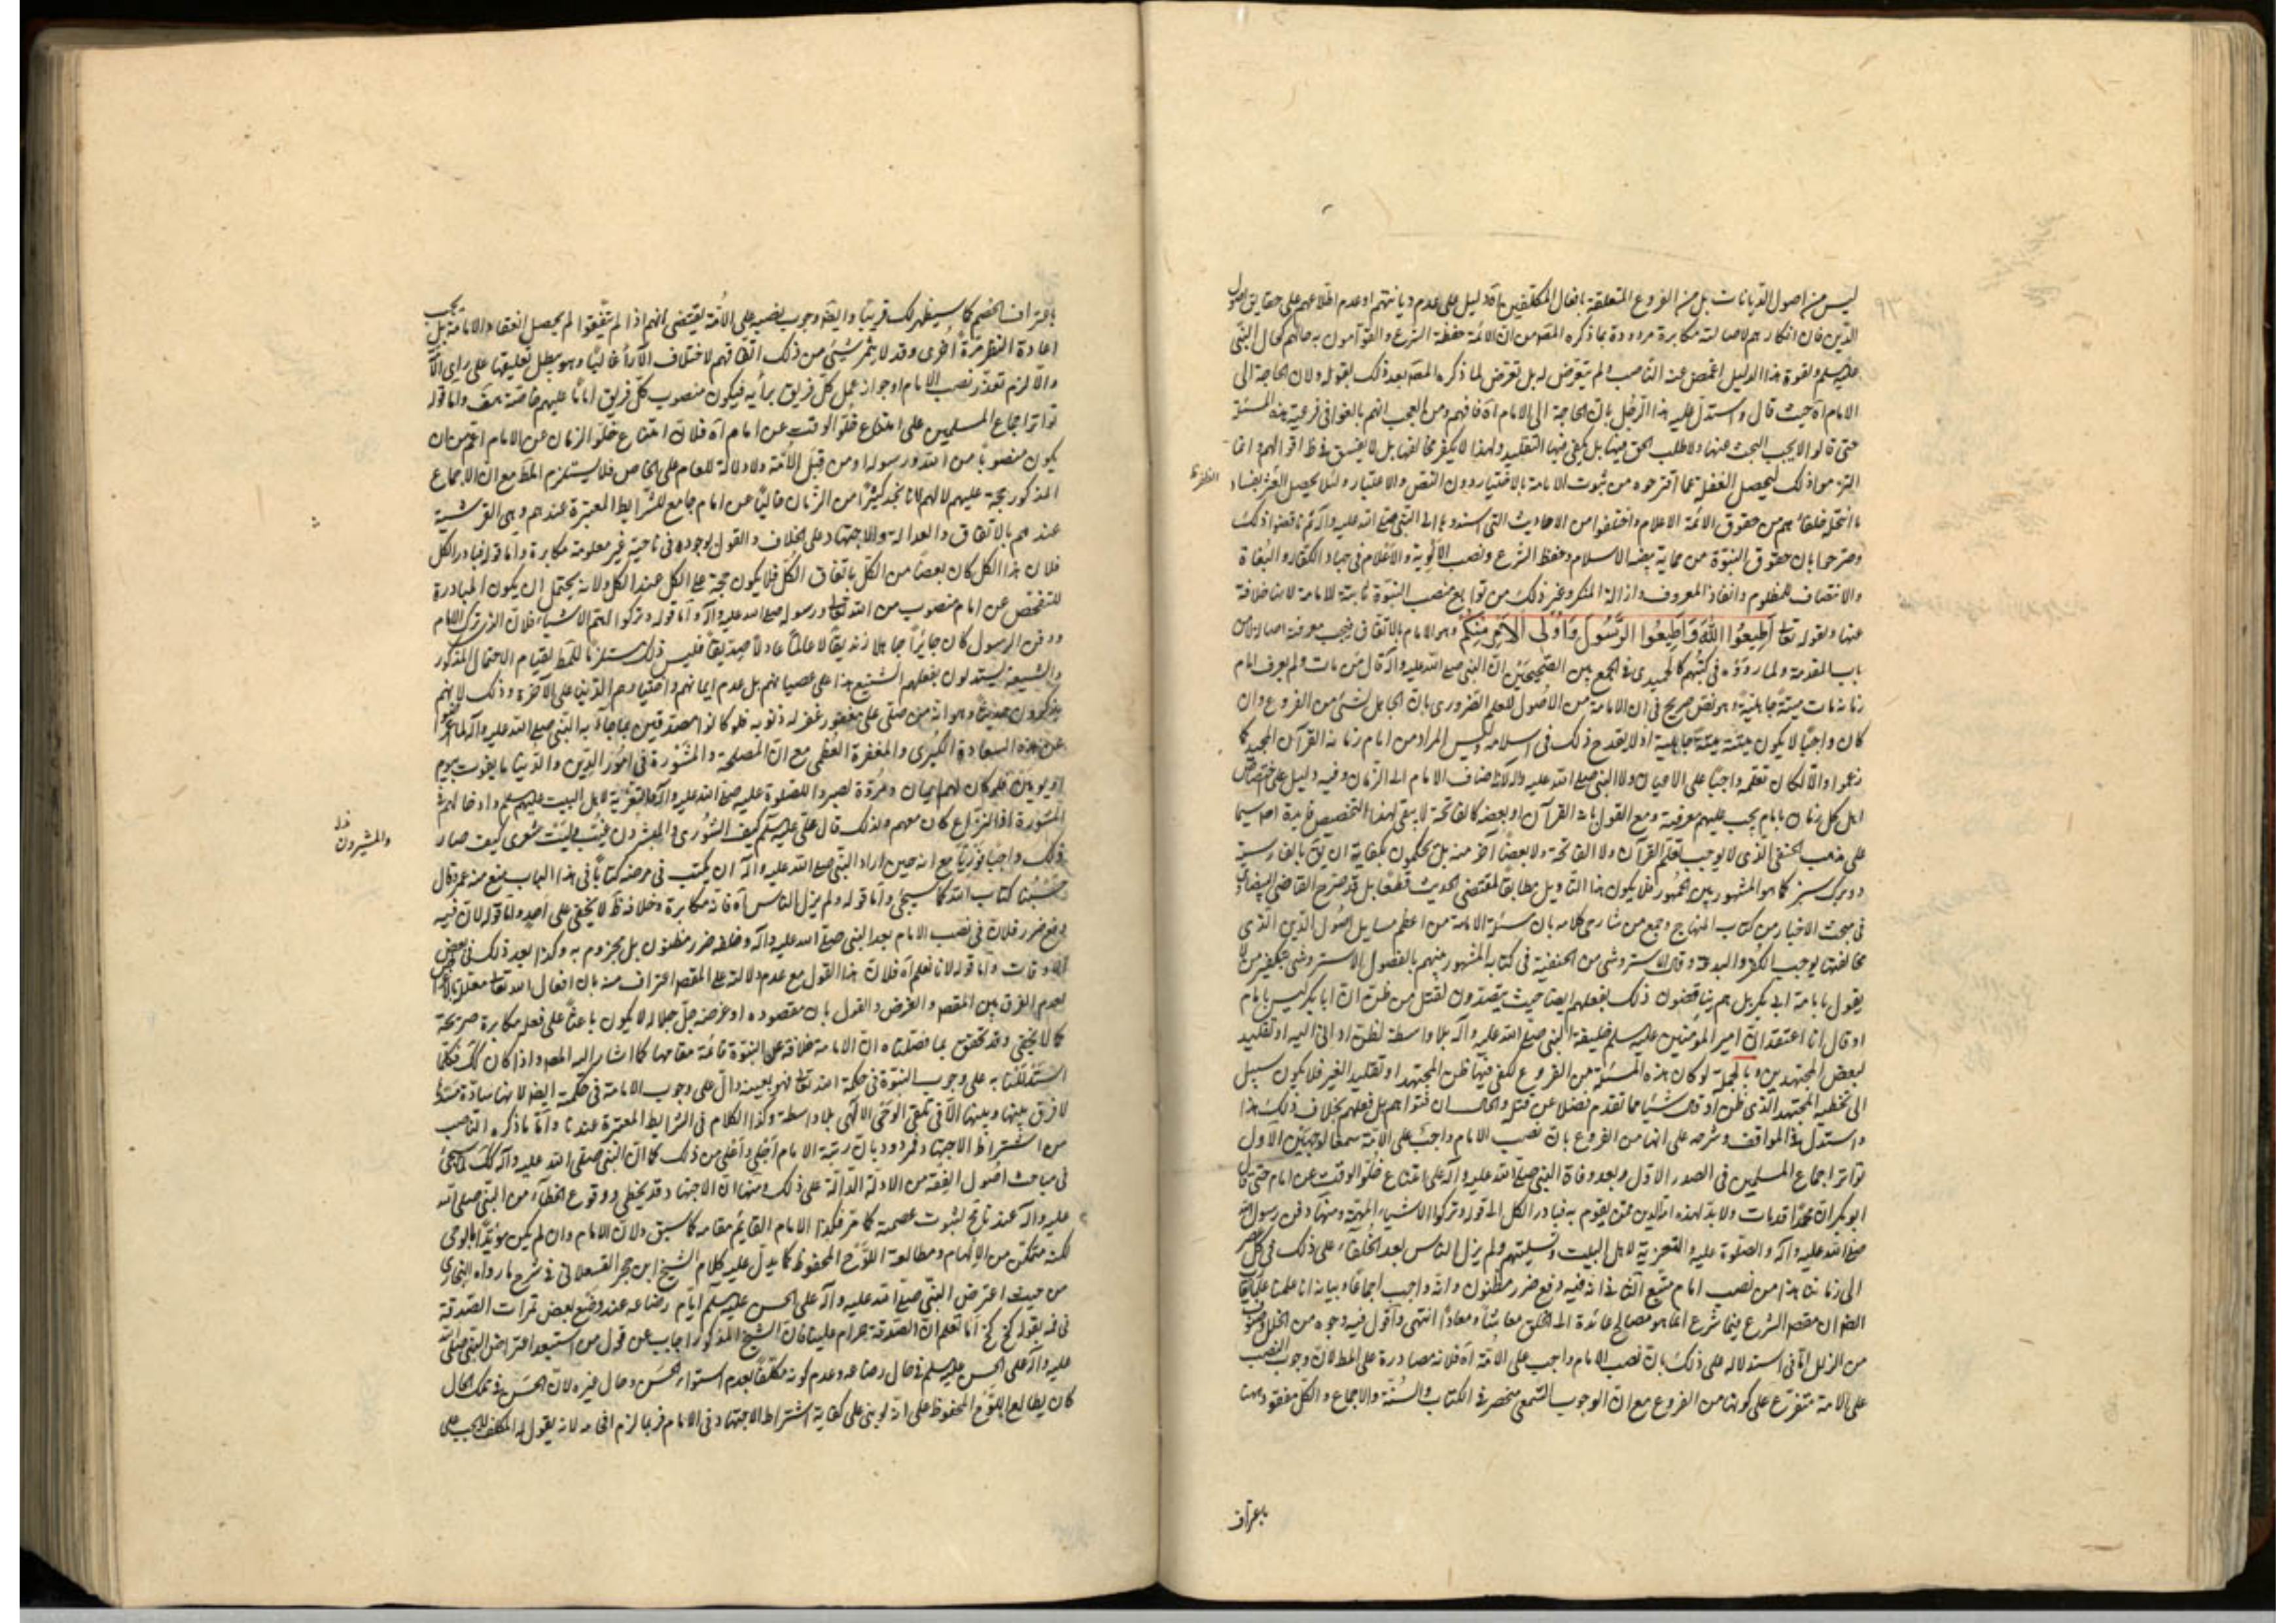 ليس من اصول الديانات بل من الفروع المتعلقة بافعال المكلفين اه دليل على عدم ديانتهم او عدم اطلاعهم على حقايق اصول
الدين فان انكارهم لاصالته مكابرة مردودة بما ذكره المصه من ان الائمة حفظة الشرع والقوامون به حالهم كحال النبى
عليه سلم ولقوة هذا الدليل اغمض عنه الناصب ولم يتعرض له بل تعرض لما ذكره المصه بعد ذلك بقوله ولان الحاجة الى
الامام اه حيث قال واستدل عليه هذا الرجل بان الحاجة الى الامام اه فافهم ومن العجب انهم بالغوا فى فرعية هذه المسئلة
حتى قالوا لا يجب البحث عنها ولا طلب الحق فيها بل يكفى فيها التقليد ولهذا لا يكفر مخالفها بل لا يفسق فى ظ اقوالهم وانما
التزموا ذلك ليحصل الغفلة عما اقترحوه من ثبوت الامامة بالاختيار دون النص والاعتبار ولئلا يحصل العثر بفساد
ما انتحله خلفاؤهم من حقوق الائمة الاعلام واختلقوا من الاحاديث التى اسندوها الى النبى صلى الله عليه واله ثم ناقضوا ذلك
وصرحوا بان حقوق النبوة من حماية بيضة الاسلام وحفظ الشرع ونصب الالوية والاعلام فى جهاد الكفار والبغاة
والانتصاف للمظلوم وانفاذ المعروف وازالة المنكر وغير ذلك من توابع منصب النبوة ثابتة للامامة لانها خلافة
عنها ولقوله تعالى اَطِيعُوا اللهَ وَاَطِيعُوا الرَّسُولَ وَاُولِى الْاَمْرِ مِنكُمْ وهو الامام بالاتفاق فيجب معرفته اصالة لا من
باب المقدمة ولما رووه فى كتبهم كالحميدى فى الجمع بين الصحيحين ان النبى صلى الله عليه واله قال من مات ولم يعرف امام
زمانه مات ميتة جاهلية وهو نص صريح فى ان الامامة من الاصول للعلم الضرورى بان الجاهل بشئ من الفروع وان
كان واجبا لا يكون ميتته ميتة جاهلية اذ لا يقدح ذلك فى اسلامه وليس المراد من امام زمانه القرآن المجيد كما
زعموا والا لكان تعلمه واجبا على الاعيان ولا النبى صلى الله عليه واله لانه اضاف الامام الى الزمان وفيه دليل على اختصاص
اهل كل زمان بامام يجب عليهم معرفته ومع القول بانه القرآن او بعضه كالفاتحة لا يبقى لهذا التخصيص فايدة اصلا سيما
على مذهب الحنفى الذى لا يوجب تعلم القرآن ولا الفاتحة ولا بعضا آخر منه بل يحكمون بكفاية ان يق بالفارسية
دو برك سبز كما هو المشهور بين الجمهور فلا يكون هذا التاويل مطابقا لمقتضى الحديث قطعا بل قد صرح القاضى البيضاوى
فى مبحث الاخبار من كتاب المنهاج وجمع من شارحى كلامه بان مسئلة الامامة من اعظم مسايل اصول الدين الذى
مخالفتها يوجب الكفر والبدعة وقال الاستروشى من الحنفية فى كتابه المشهور بينهم بالفصول الاستروشى بتكفير من لا
يقول بامامة ابى بكر بل هم يناقضون ذلك بفعلهم ايضا حيث يتصدون لقتل من ظن ان ابا بكر ليس بامام
او قال انا اعتقد ان امير المؤمنين عليه سلم خليفة النبى صلى الله عليه واله بلا واسطة لظن ادانى اليه او تقليد
لبعض المجتهدين وبالجملة لو كان هذه المسئلة من الفروع لكفى فيها ظن المجتهد او تقليد الغير فلا يكون سبيل
الى تخطية المجتهد الذى ظن او قال شيئا مما تقدم فضلا عن قتله والحال ان فتواهم بل فعلهم بخلاف ذلك هذا
واستدل فى المواقف وشرحه على انها من الفروع بان نصب الامام واجب على الامة سمعا لوجهين الاول
تواتر اجماع المسلمين فى الصدر الاول وبعد وفاة النبى صلى الله عليه واله على امتناع خلو الوقت عن امام حتى قال
ابو بكر ان محمدا قد مات ولا بد لهذا الدين ممن يقوم به فبادر الكل الى قوله وتركوا الاشياء المهمة ومنها دفن رسول الله
صلى الله عليه واله والصلوة عليه والتعزية لاهل البيت وتسليتهم ولم يزل الناس بعد الخلفاء على ذلك فى كل عصر
الى زماننا هذا من نصب امام متبع الثانى انه فيه دفع ضرر مظنون وانه واجب اجماعا وبيانه انا علمنا علما يقارب
الضرورة ان مقصد الشرع فيما شرع انما هو مصالح عائدة الى الخلق معاشا ومعادا انتهى واقول فيه وجوه من الخلل وصنوف
من الزلل اما فى استدلاله على ذلك بان نصب الامام واجب على الامة اه فلانه مصادرة على المط لان وجوب النصب
على الامة متفرع على كونها من الفروع مع ان الوجوب السمعى منحصر فى الكتاب والسنة والاجماع والكل مفقود ههنا
باعتراف
باعتراف الخصم كما سيظهر لك قريبا وايضا وجوب نصبه على الامة يقتضى انهم اذا لم يتفقوا لم يحصل انعقاد الامامة بل يجب
اعادة النظر مرة اخرى وقد لا يثمر شيئ من ذلك اتفاقهم لاختلاف الآراء غالبا وهو يبطل تعليقها على راى الامة
والا لزم تعذر نصب الامام او جواز عمل كل فريق برأيه فيكون منصوب كل فريق اماما عليهم خاصة هف واما قوله
تواتر اجماع المسلمين على امتناع خلو الوقت عن امام اه فلان امتناع خلو الزمان عن الامام اعم من ان
يكون منصوبا من الله ورسوله او من قبل الامة ولا دلالة للعام على الخاص فلا يستلزم المط مع ان الاجماع
المذكور حجة عليهم لا لهم لانا نجد كثيرا من الزمان خاليا عن امام جامع للشرايط المعتبرة عندهم وهى القرشية
عندهم بالاتفاق والعدالة والاجتهاد على الخلاف والقول بوجوده فى ناحية غير معلومة مكابرة واما قوله فبادر الكل
فلان هذا الكل كان بعضا من الكل باتفاق الكل فلا يكون حجة على الكل عند الكل ولانه يحتمل ان يكون المبادرة
للتفحص عن امام منصوب من الله تعالى ورسوله صلى الله عليه واله واما قوله وتركوا لهم الاشياء فلان الذى ترك الامام
ودفن الرسول كان جائرا جاهلا زنديقا لا عالما عادلا صديقا فليس ذلك مستلزما للمط لقيام الاحتمال المذكور
والشيعة يستدلون بفعلهم الشنيع هذا على عصيانهم بل عدم ايمانهم واختيارهم الدنيا على الآخرة وذلك لانهم
يذكرون حديثا وهو انه من صلى على مغفور غفر له ذنوبه فلو كانوا مصدقين بما جاء به النبى صلى الله عليه واله لما اعرضوا
عن هذه السعادة الكبرى والمغفرة العظمى مع ان المصلحة والمشورة فى امور الدين والدنيا ما يفوت بيوم
او يومين فلو كان لهم ايمان ومروة لصبروا للصلوة عليه صلى الله عليه واله والتعزية لاهل البيت عليهم سلم وادخالهم فى
المشورة اذا النزاع كان معهم ولذلك قال على عليه سلم كيف الشورى والمبشرون غيب وليت شعرى كيف صار
ذلك واجبا فوريا مع انه حين اراد النبى صلى الله عليه واله ان يكتب فى مرضه كتابا فى هذا الباب منع منه عمر وقال
حسبنا كتاب الله كما سيجئ واما قوله ولم يزل الناس اه فانه مكابرة وخلافه ظ لا يخفى على احد واما قوله لان فيه
دفع ضرر فلان فى نصب الامام بعد النبى صلى الله عليه واله وخلفه ضرر مظنون بل مجزوم به وكذا بعد ذلك فى بعض
الاوقات واما قوله لانا نعلم اه فلان هذا القول مع عدم دلالته على المقصد اعتراف منه بان افعال الله تعالى معللة بالاغراض
لعدم الفرق بين المقصد والغرض والقول بان مقصوده او غرضه جل جلاله لا يكون باعثا على فعله مكابرة صريحة
كما لا يخفى وقد تحقق بما فصلناه ان الامامة خلافة عن النبوة قائمة مقامها كما اشار اليه المصه واذا كان كك فكلما
استدللنا به على وجوب النبوة فى حكمة الله تعالى فهو بعينه دال على وجوب الامامة فى حكمته ايضا لانها سادة مسدها
لا فرق بينها وبينها الا فى تلقى الوحى الالهى بلا واسطة وكذا الكلام فى الشرايط المعتبرة عندنا واما ما ذكره الناصب
من اشتراط الاجتهاد فمردود بان رتبة الامام اجل واعلى من ذلك كما ان النبى صلى الله عليه واله كك لما سيجئ
فى مباحث اصول الفقه من الادلة الدالة على ذلك ومنها ان الاجتهاد قد يخطى ووقوع الخطاء من النبى صلى الله
عليه واله عندنا قبيح لثبوت عصمته كما مر فكذا الامام القائم مقامه كما سبق ولان الامام وان لم يكن مؤيدا بالوحى
لكنه متمكن من الالهام ومطالعة اللوح المحفوظ كما يدل عليه كلام الشيخ ابن حجر العسقلانى فى شرح ما رواه البخارى
من حيث اعترض النبى صلى الله عليه واله على الحسن عليه سلم ايام رضاعه عند وضع بعض تمرات الصدقة
فى فيه بقوله كخ كخ اما تعلم ان الصدقة حرام علينا فان الشيخ المذكور اجاب عن قول من استبعد اعتراض النبى صلى الله
عليه واله على الحسن عليه سلم فى حال رضاعه وعدم كونه مكلفا بعدم استواء الحسن وحال غيره لان الحسن فى تلك الحال
كان يطالع اللوح المحفوظ على انه لو بنى على كفاية اشتراط الاجتهاد فى الامام فربما لزم افحامه لانه يقول له المكلف لا يجب على
والمشيرون